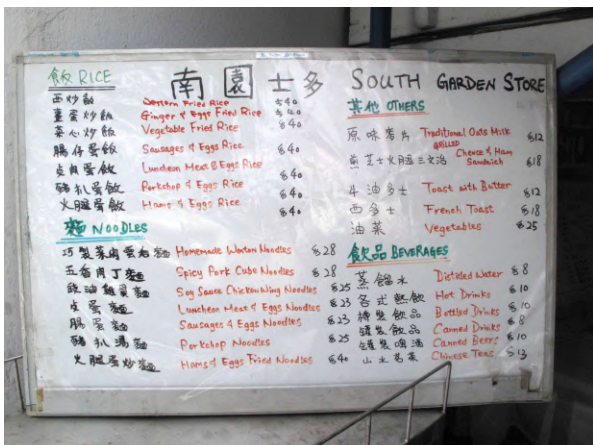 南園士多 SOUTH GARDEN STORE
飯 RICE
西炒飯 Western Fried Rice $40
薑蛋炒飯 Ginger & Eggs Fried Rice $40
菜心炒飯 Vegetable Fried Rice $40
腸仔蛋飯 Sausages & Eggs Rice $40
肉蛋飯 Luncheon Meat & Eggs Rice $40
豬扒蛋飯 Porkchop & Eggs Rice $40
火腿蛋飯 Hams & Eggs Rice $40
麵 NOODLES
巧製菜肉雲吞麵 Homemade Wonton Noodles $28
五香肉丁麵 Spicy Pork Cube Noodles $28
豉油雞翼麵 Soy Sauce Chicken Wing Noodles $25
蛋麵 Luncheon Meat & Eggs Noodles $23
腸蛋麵 Sausages & Eggs Noodles $23
豬扒湯麵 Porkchop Noodles $25
火腿蛋炒麵 Hams & Eggs Fried Noodles $40
其他 OTHERS
原味麥片 Traditional Oats Milk $12
煎芝士火腿三文治 GRILLED Cheese & Ham Sandwich $18
牛油多士 Toast with Butter $12
西多士 French Toast $18
油菜 Vegetables $25
飲品 BEVERAGES
蒸餾水 Distilled Water $8
各式熱飲 Hot Drinks $10
樽裝飲品 Bottled Drinks $10
罐裝飲品 Canned Drinks $8
罐裝啤酒 Canned Beers $10
山水茗茶 Chinese Teas $13